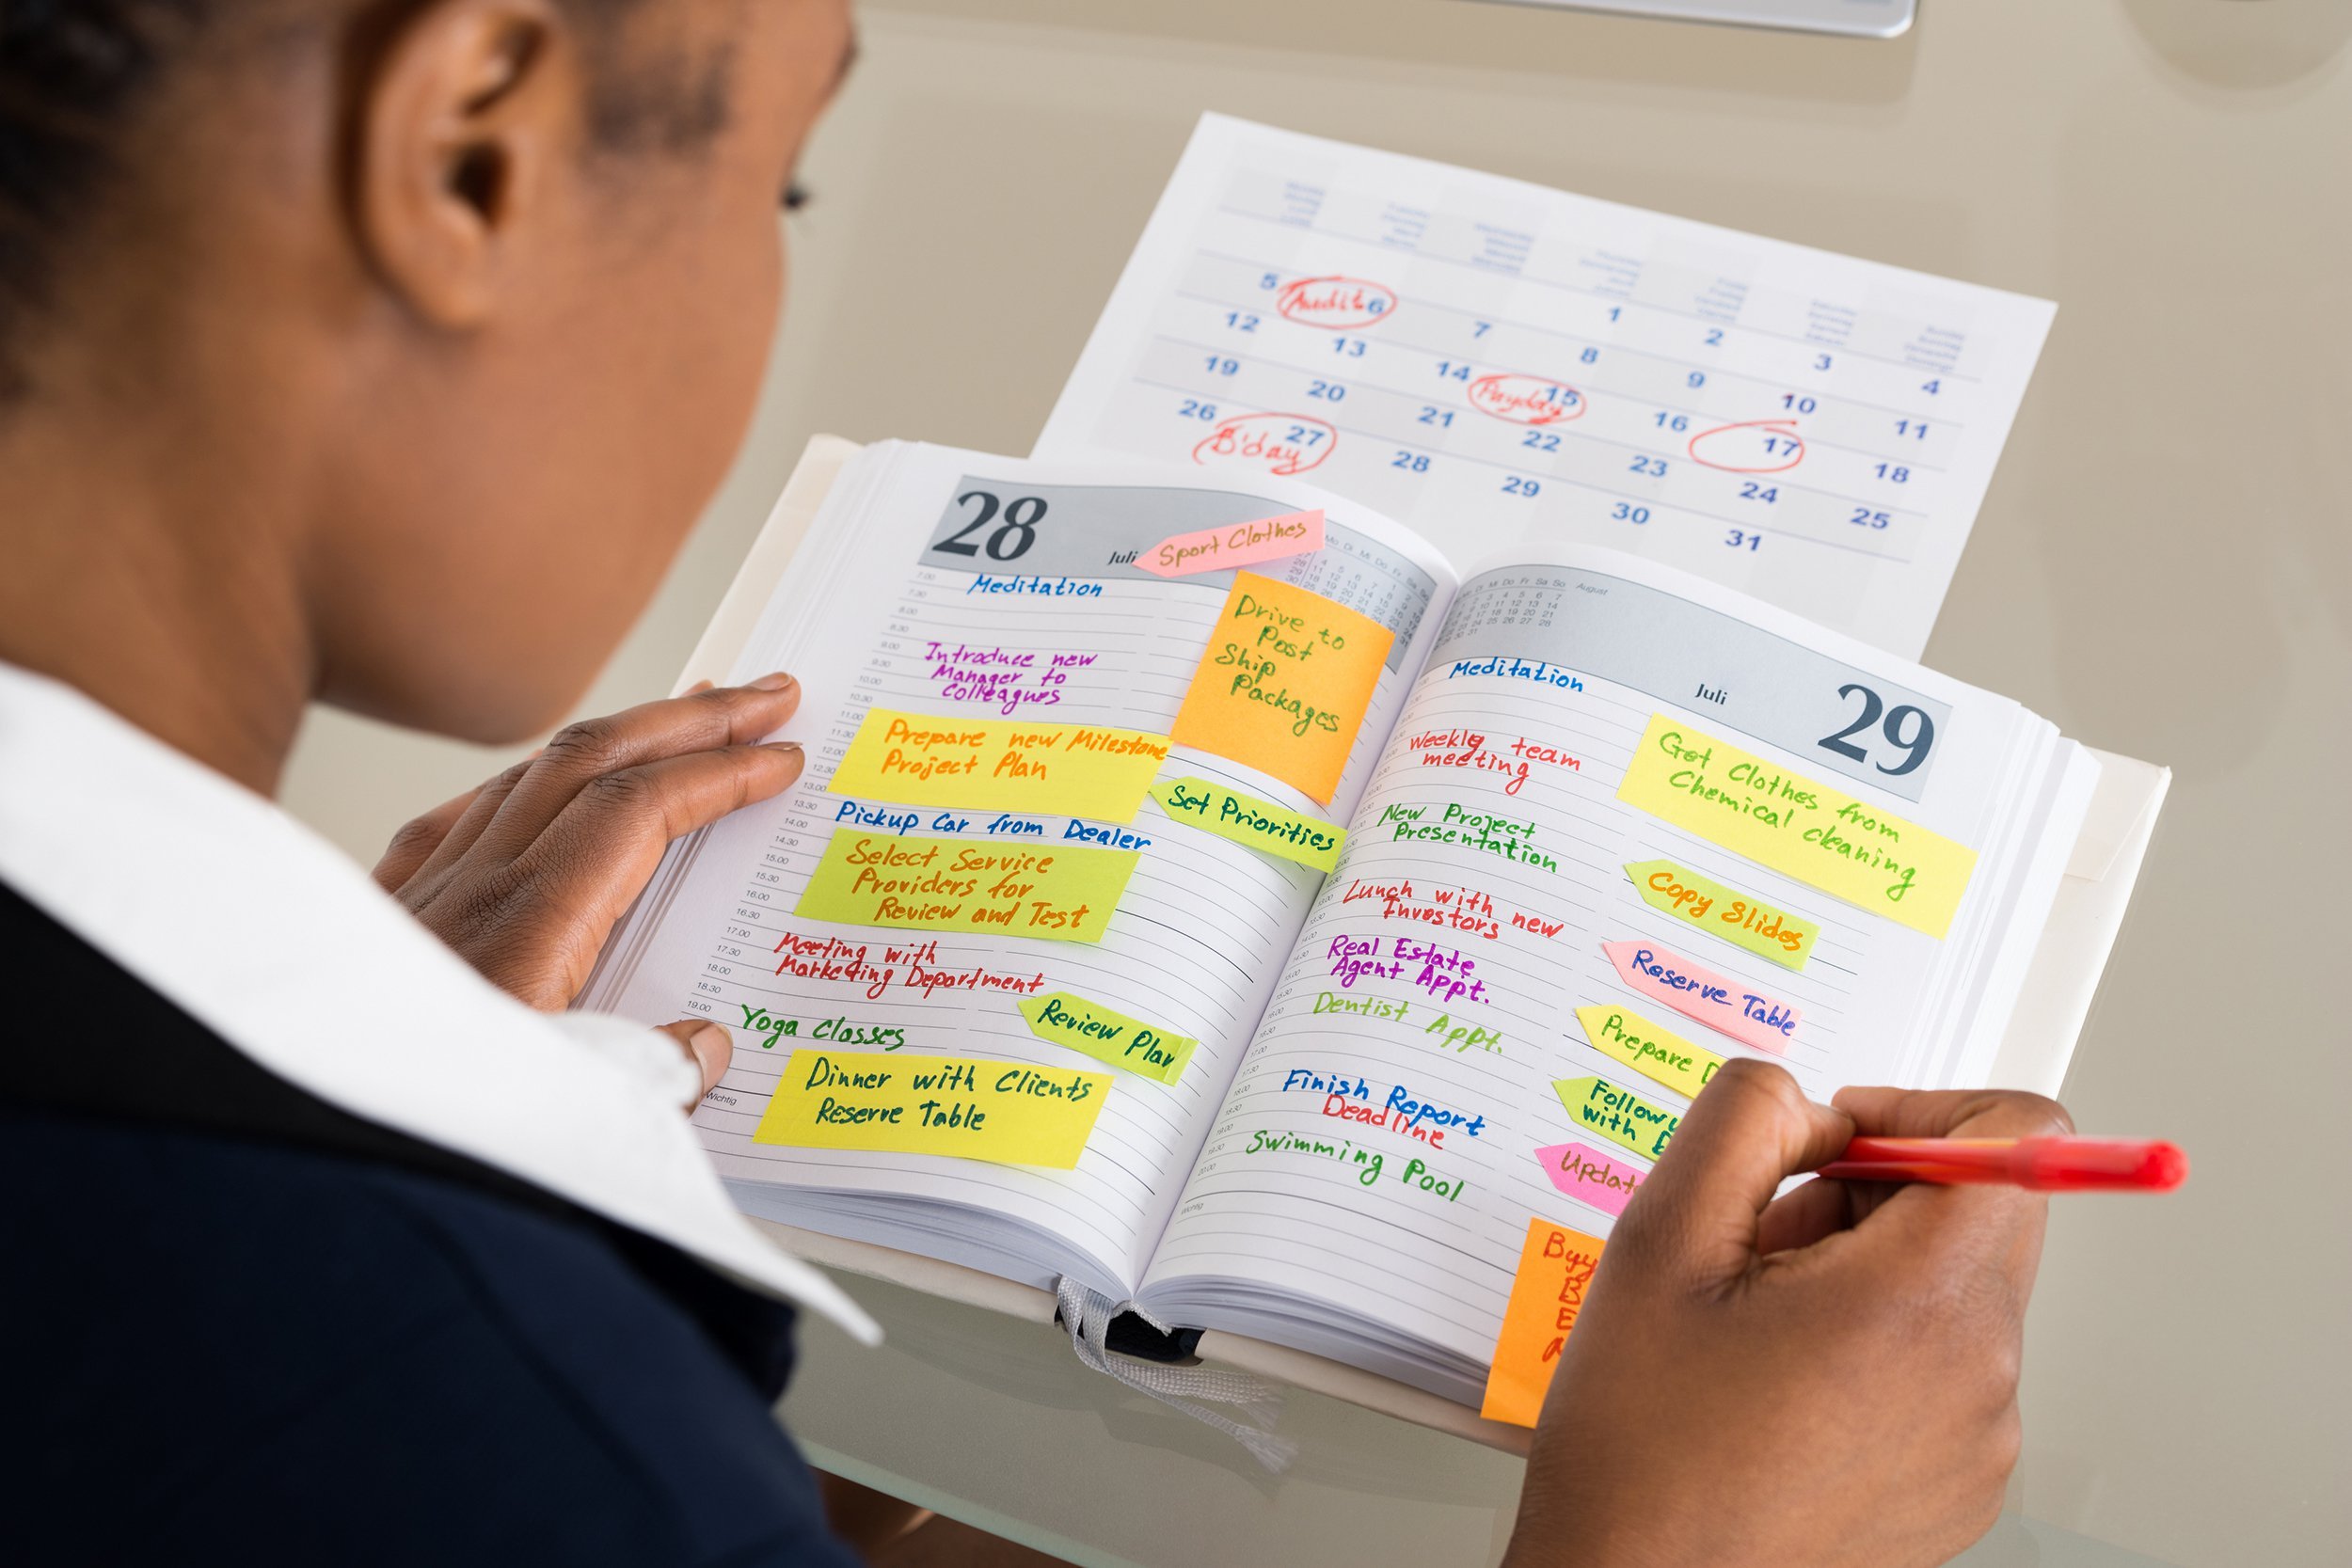 1 2 3 4
5 Audit 6 7 8 9 10 11
12 13 14 Payday 15 16 17 18
19 20 21 22 23 24 25
26 B'day 27 28 29 30 31
28
Juli
Sport Clothes
Meditation
Introduce new
Manager to
Colleagues
Prepare new Milestone
Project Plan
Pickup Car from Dealer
Select Service
Providers for
Review and Test
Meeting with
Marketing Department
Yoga Classes
Dinner with Clients
Reserve Table
Wichtig
Drive to
Post
Ship
Packages
Set Priorities
Review Plan
August
Juli
29
Meditation
Weekly team
meeting
New Project
Presentation
Lunch with new
Investors
Real Estate
Agent Appt.
Dentist Appt.
Finish Report
Deadline
Swimming Pool
Wichtig
Get Clothes from
Chemical cleaning
Copy Slides
Reserve Table
Prepare
Follow
with
Update